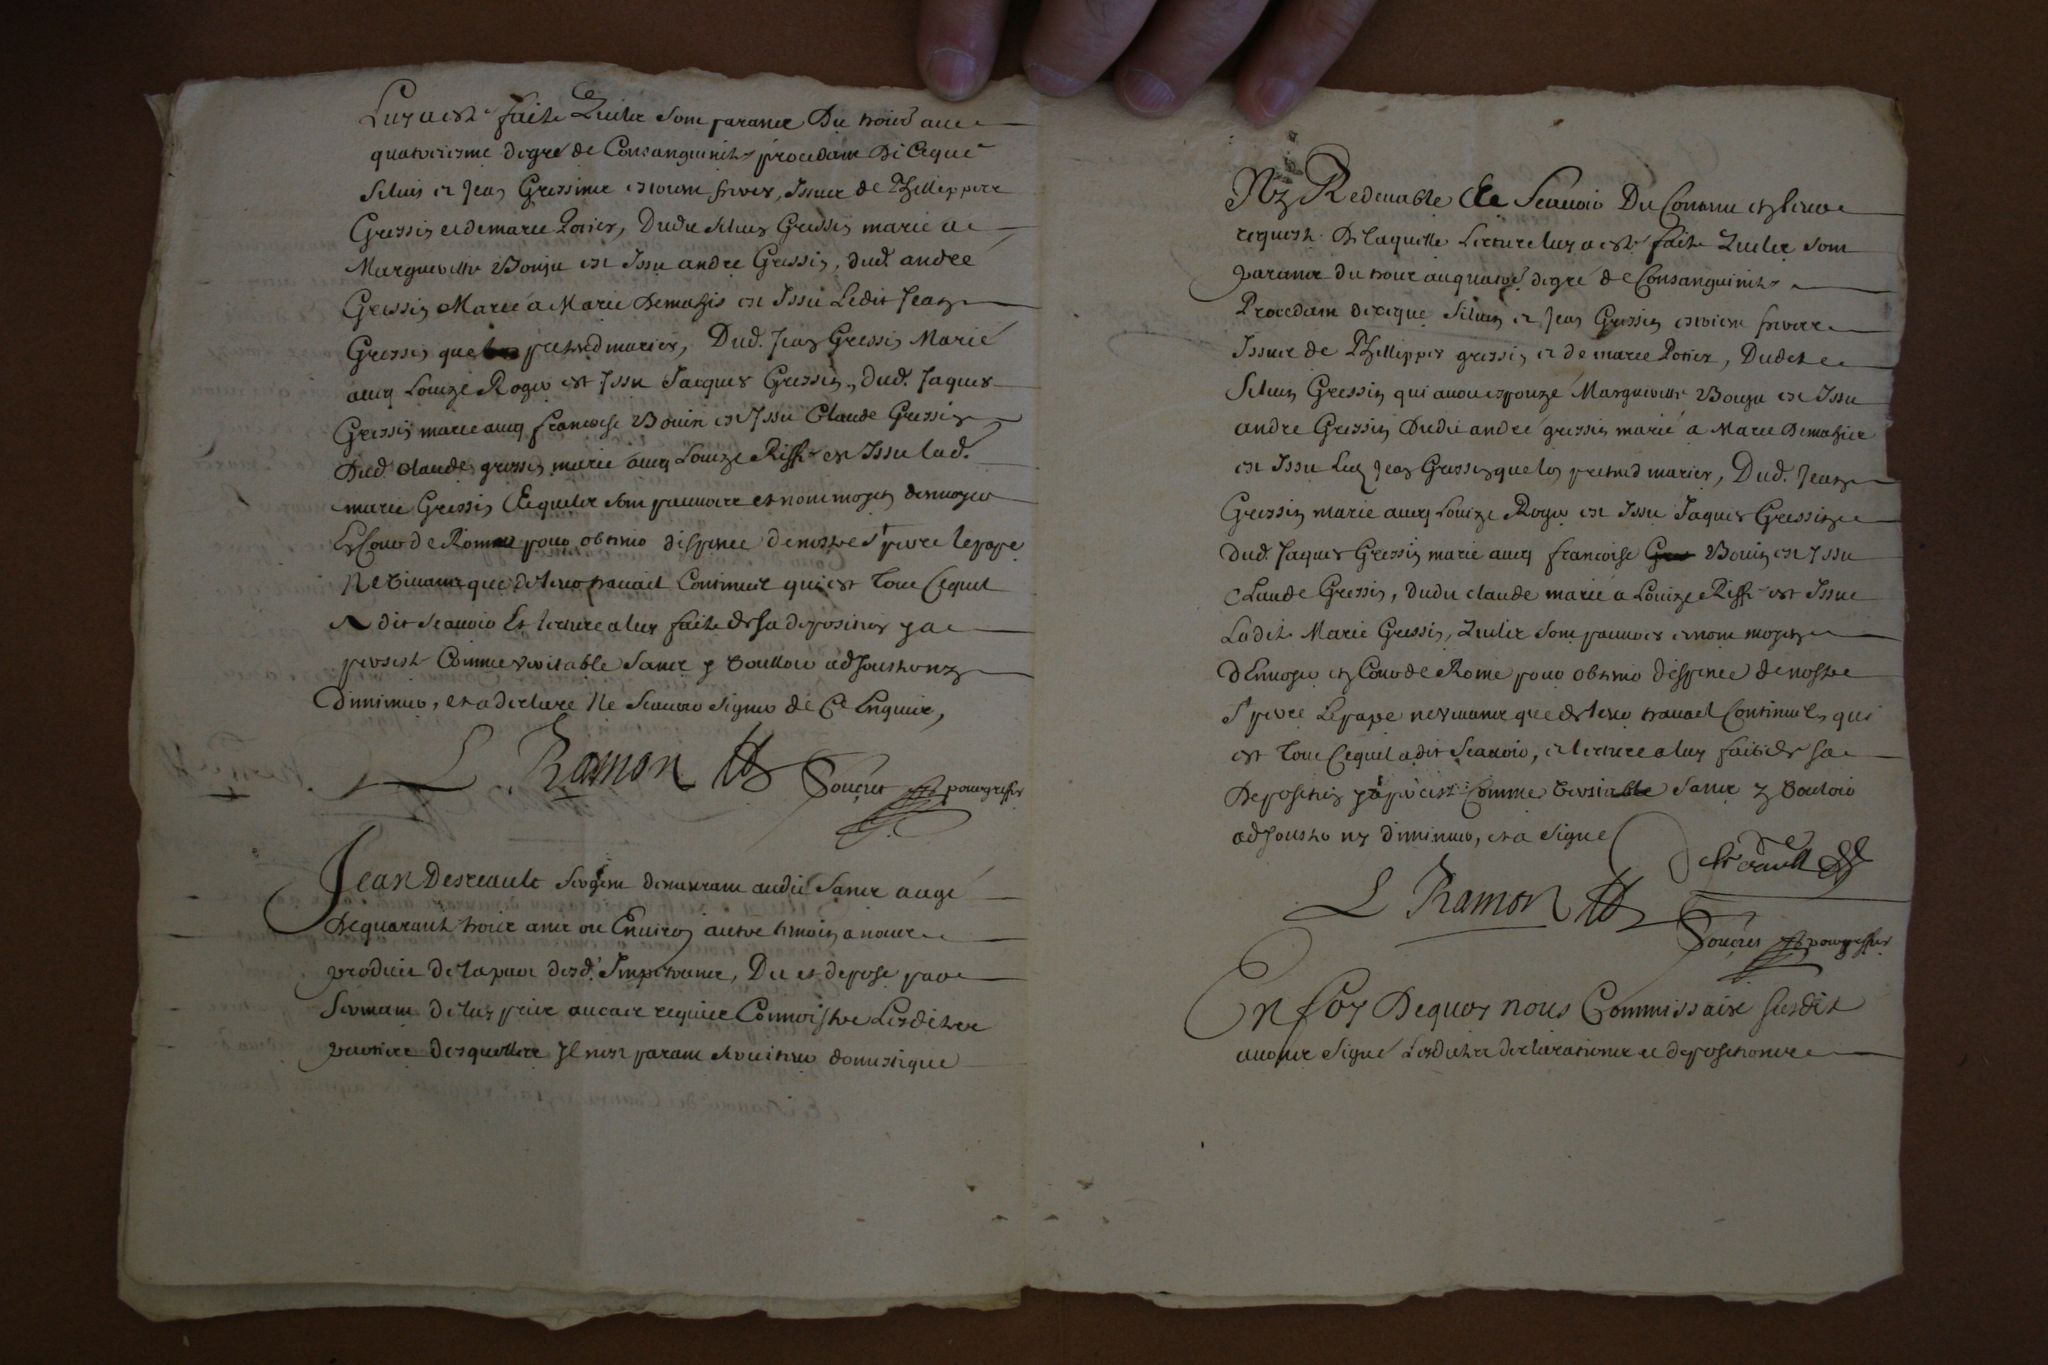 Luy a esté faite quilz sont parans du trois au
quatoriesme degré de Consanguinité procedant de ceque
Silvin et Jean Gressin estoient freres, Issus de Phillippes
Gressin et de marie Poirier, Dudit Silvin Gressin marié a
Margueritte Bouju est Issu andré Gressin, dud. andré
Gressin Marié a Marie Demahis est Issu Ledit Jean
Gressin que lon pretend marier, Dud. Jean Gressin Marié
avecq Louize Roger est Issu Jacques Gressin, dud. Jaques
Gressin marié avecq francoise Bouin est Issu Claude Gressin
Dud. Claude gressin marié avecq Louize Riffé est Issu lad.
marie Gressin Et quilz sont pauvres et nont moyen denvoyer
En Cour de Rome pour obtenir dispence de nostre St pere le pape
Ne vivant que de leur travail Continuel qui est tout Cequil
a dit scavoir Et lecture a luy faite de sa deposition y a
persisté Comme veritable sans y voulloir adjouster ny
diminuer, et a declaré Ne scavoir signer de Ce Enquis,
L Ramon
Soucret pour greffier
Jean Desreault sergent demeurant audit Sancerre aagé
De quarante trois ans ou Environ autre temoin a nous
produit de la part desd. Impetrans, Dit et depose par
serment de luy pris au cas requis Connoistre Lesdites
parties desquelles Il nest parant serviteur domestique
Ny Redevable Et Scavoir Du Contenu en leur
requeste De laquelle Lecture luy a esté faite quilz sont
parans du trois au quatre degré de Consanguinité
Procedant de ceque Silvin et Jean Gressin estoient freres
Issus de Phillippes gressin et de marie Poirier, Dudit
Silvin Gressin qui avoit espouzé Margueritte Bouju est Issu
andré Gressin Dudit andré gressin marié a Marie Demahis
est Issu Led Jean Gressin que lon pretend marier, Dud. Jean
Gressin marié avecq Louize Roger est Issu Jaques Gressin
dud. Jaques Gressin marié avecq francoise Bouin est Issu
Claude Gressin, dudit claude marié a Louize Riffé est Issue
Ladite Marie Gressin, quilz sont pauvres et nont moyen
dEnvoyer en Cour de Rome pour obtenir dispence de nostre
St pere Le pape ne vivant que de leur travail Continuel, qui
est tout Cequil a dit Scavoir, et lecture a luy faite de sa
Deposition y a persisté Comme veritable sans y vouloir
adjouster ny diminuer, et a signé
Desreault
L Ramon
Soucret pour greffier
En foy Dequoy nous Commissaire susdit
avons signé Lesdites declarations et depositions